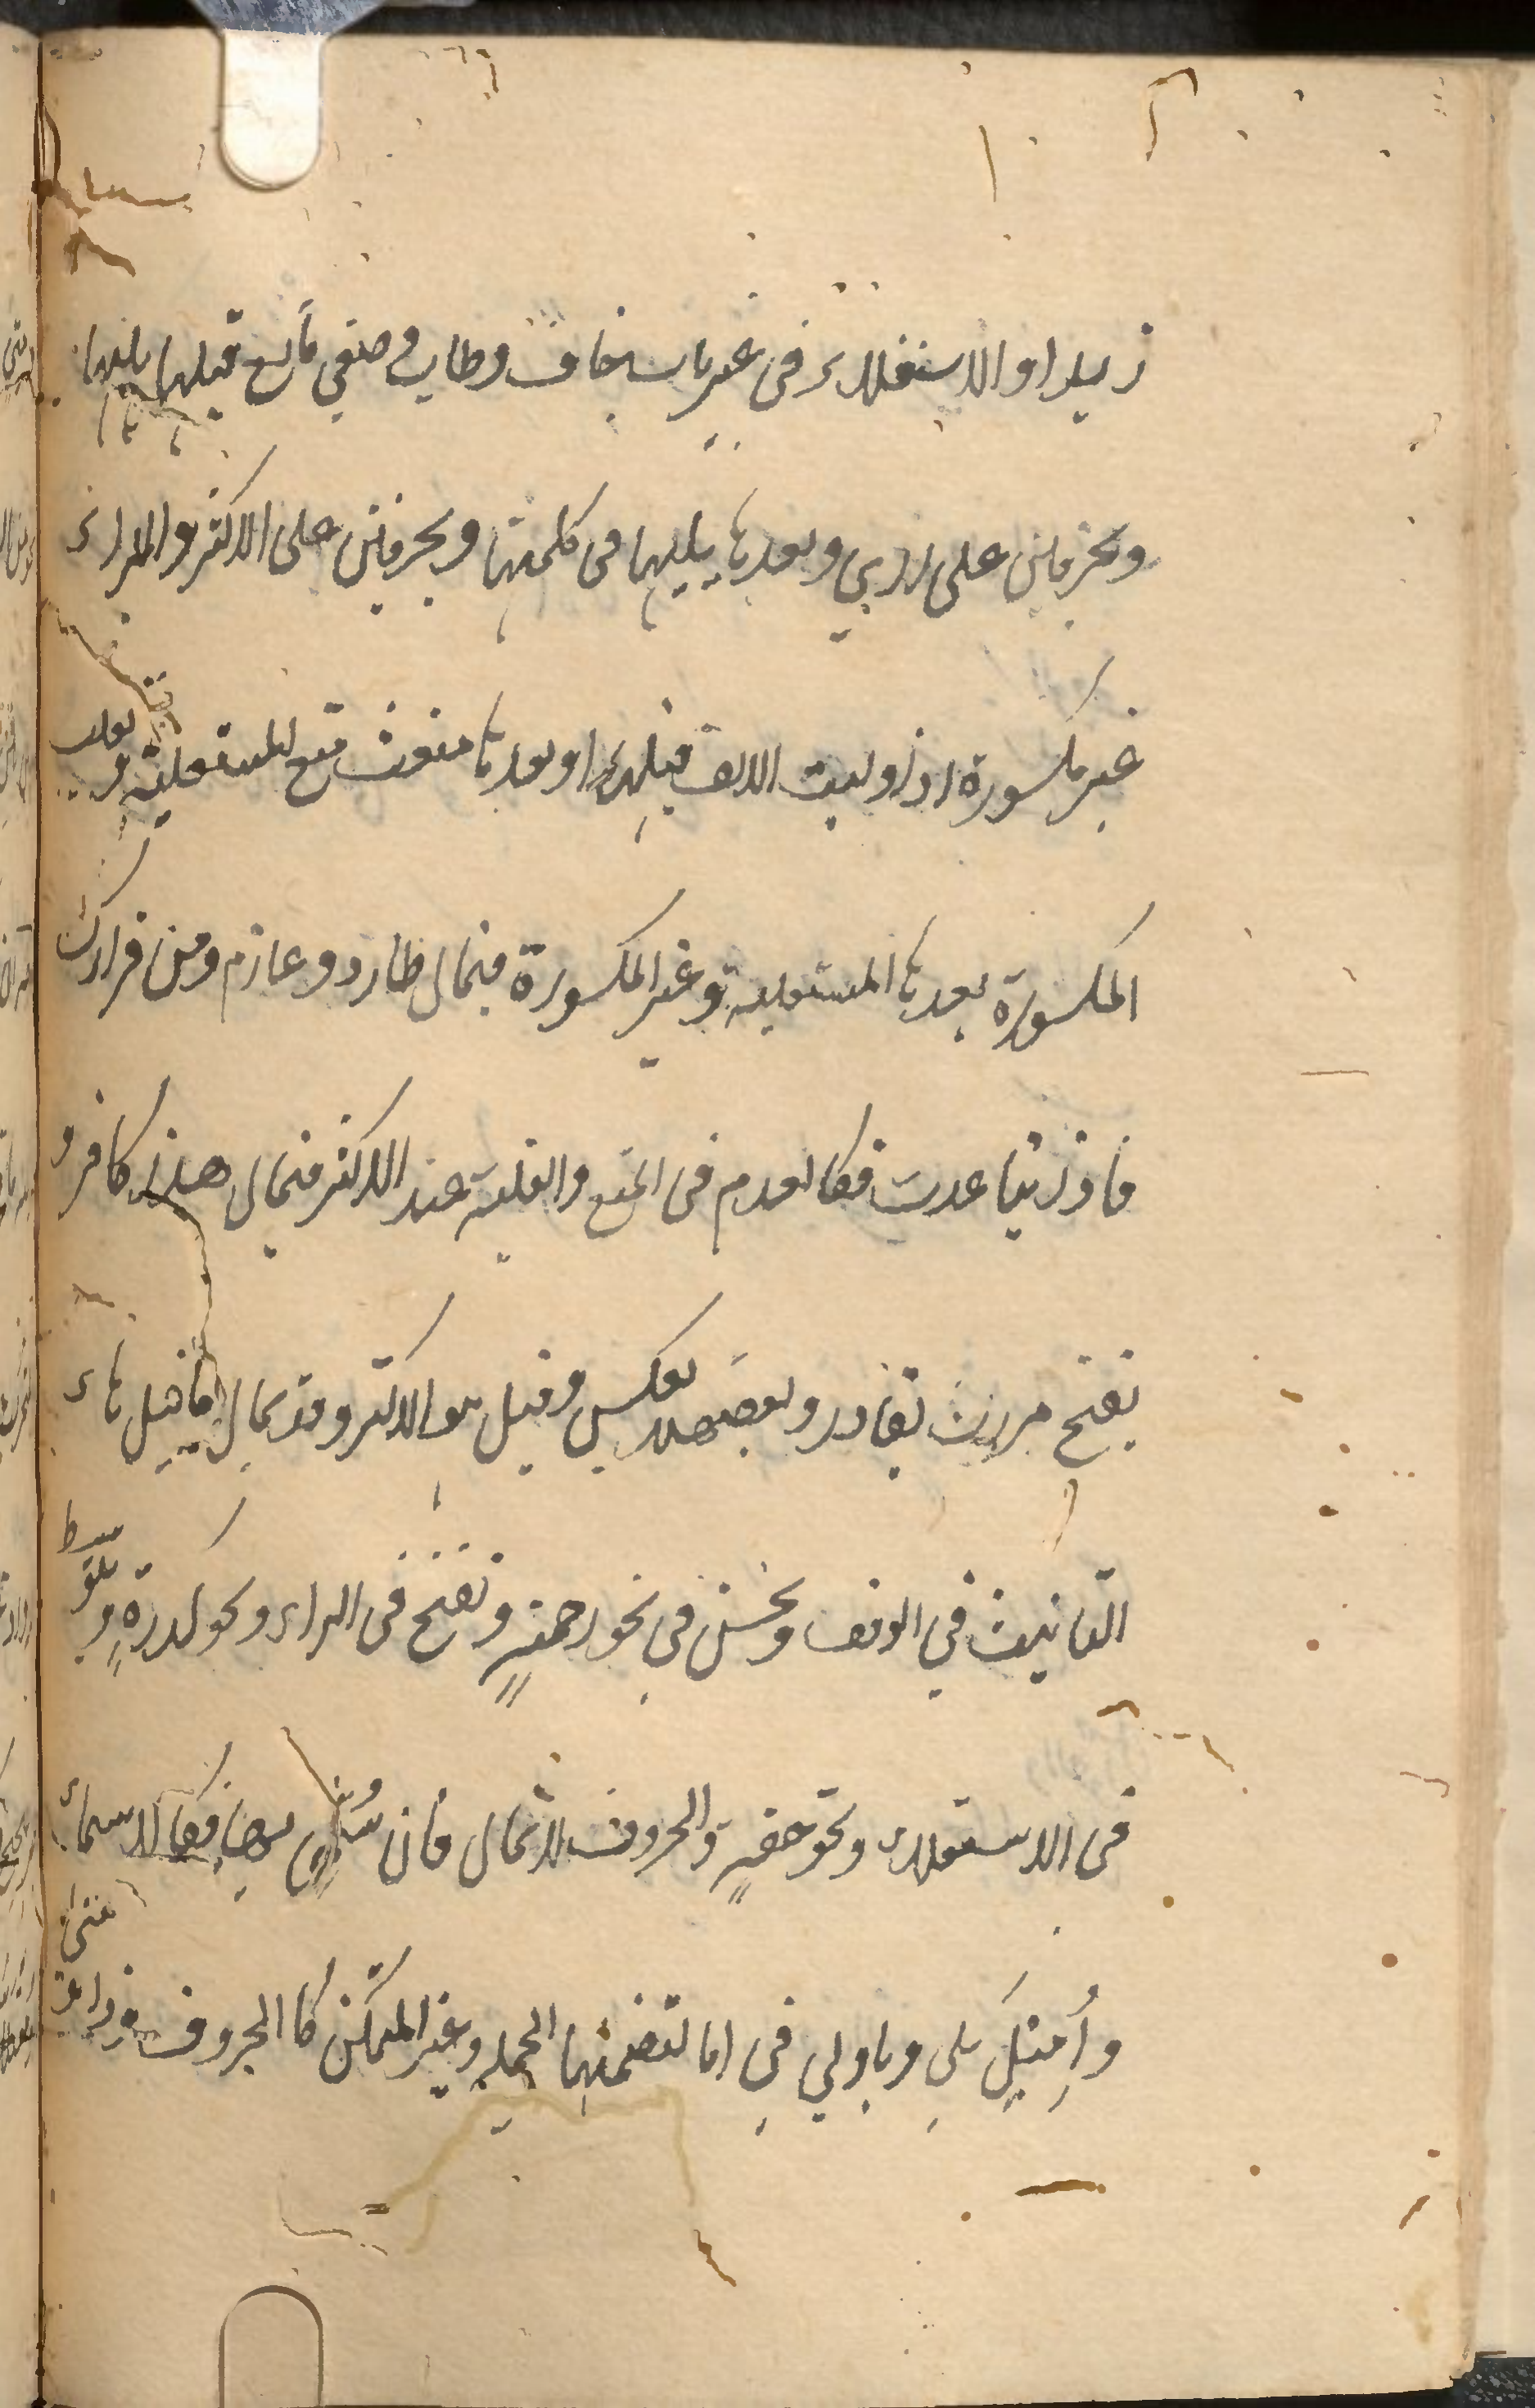 زيدا والاستعلاء في غير باب خاف وطاب وصغي مانع قبلها يليها
وبحرفين على راي وبعدها يليها في كلمتها وبحرفين على الاكثر والراء
غير مكسورة اذا وليت الالف قبلها او بعدها منعت منع المستعلية وتغلب
المكسورة بعدها المستعلية وغير المكسورة فيمال طارد وغارم ومن قرارك
فاذا تباعدت فكالعدم في المنع والغلبة عند الاكثر فيمال هذا كافر و
يفتح مررت بقادر وبعضهم يعكس وقيل هو الاكثر وقد يمال ما قبل هاء
التانيث في الوقف ويحسن في نحو رحمة وتفتح في الراء نحو كدرة ويتوسط
في الاستعلاء نحو حقة والحروف لا تمال فان سمي بها فكالاسماء
وأميل بلى ويا ولا في اما لتضمنها الجملة وغير المتمكن كالحروف وذا وانى